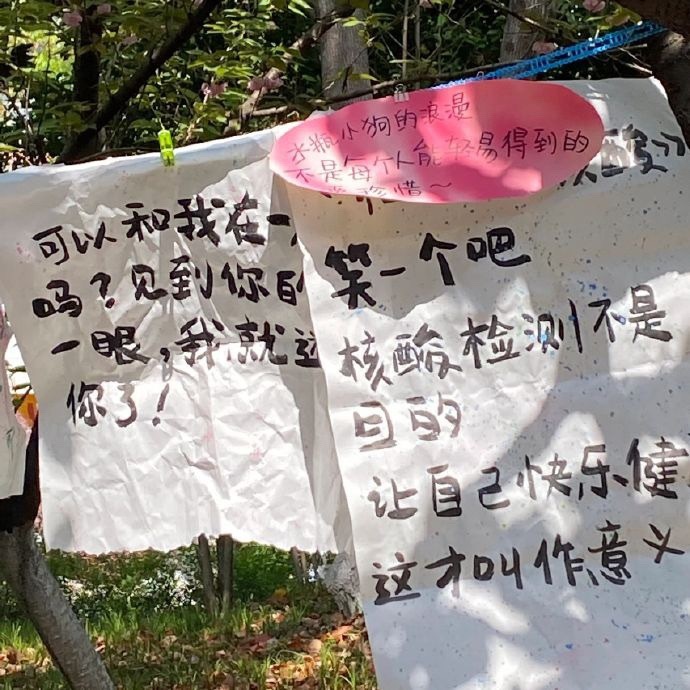 可以和我在一
吗？见到你的
一眼，我就这
你了！
水瓶小狗的浪漫
不是每个人能轻易得到的
珍惜～
核酸
笑一个吧
核酸检测不是
目的
让自己快乐健
这才叫作意义